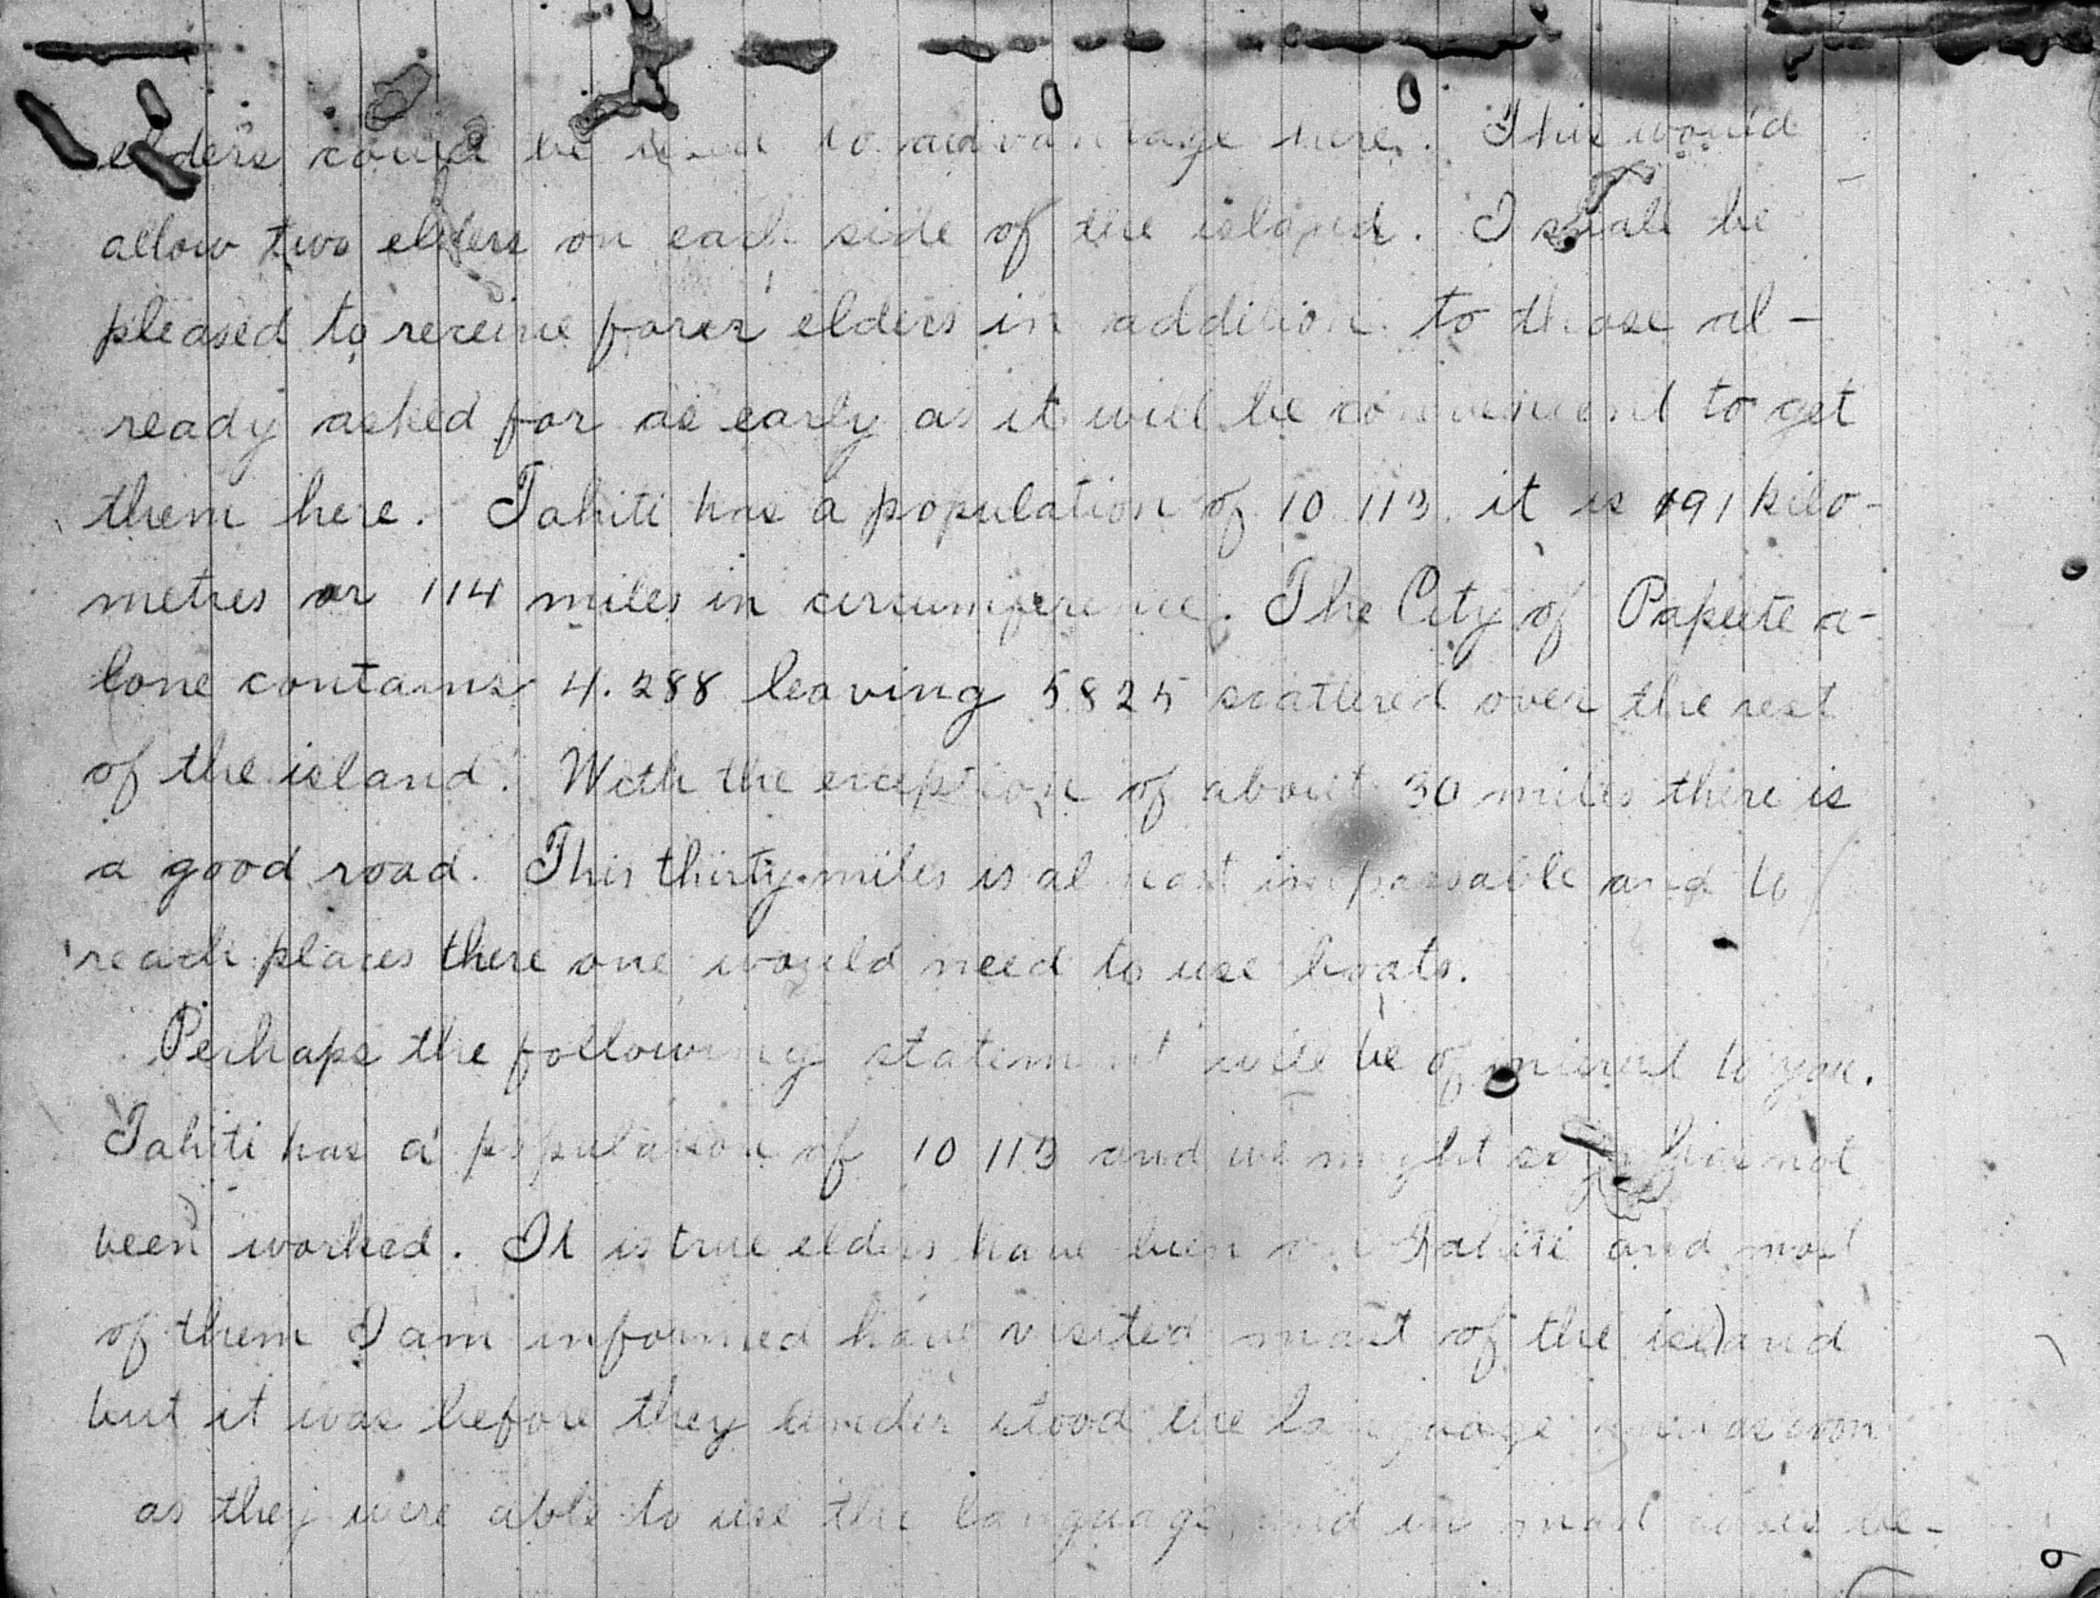 elders could be used to advantage here. This would
allow two elders on each side of the island. I shall be
pleased to receive four elders in addition to those al-
ready asked for as early as it will be convenient to get
them here. Tahiti has a population of 10 113. it is 191 kilo-
metres or 114 miles in circumference. The City of Papeete a-
lone contains 4.288 leaving 5825 scattered over the rest
of the island. With the exception of about 30 miles there is
a good road. This thirty miles is almost impassable and to
reach places there one would need to use boats.
Perhaps the following statement will be of interest to you.
Tahiti has a population of 10 113 and we might say has not
been worked. It is true elders have been on Tahiti and most
of them I am informed have visited most of the island
but it was before they under stood the language as soon
as they were able to use the language, and in most cases be-